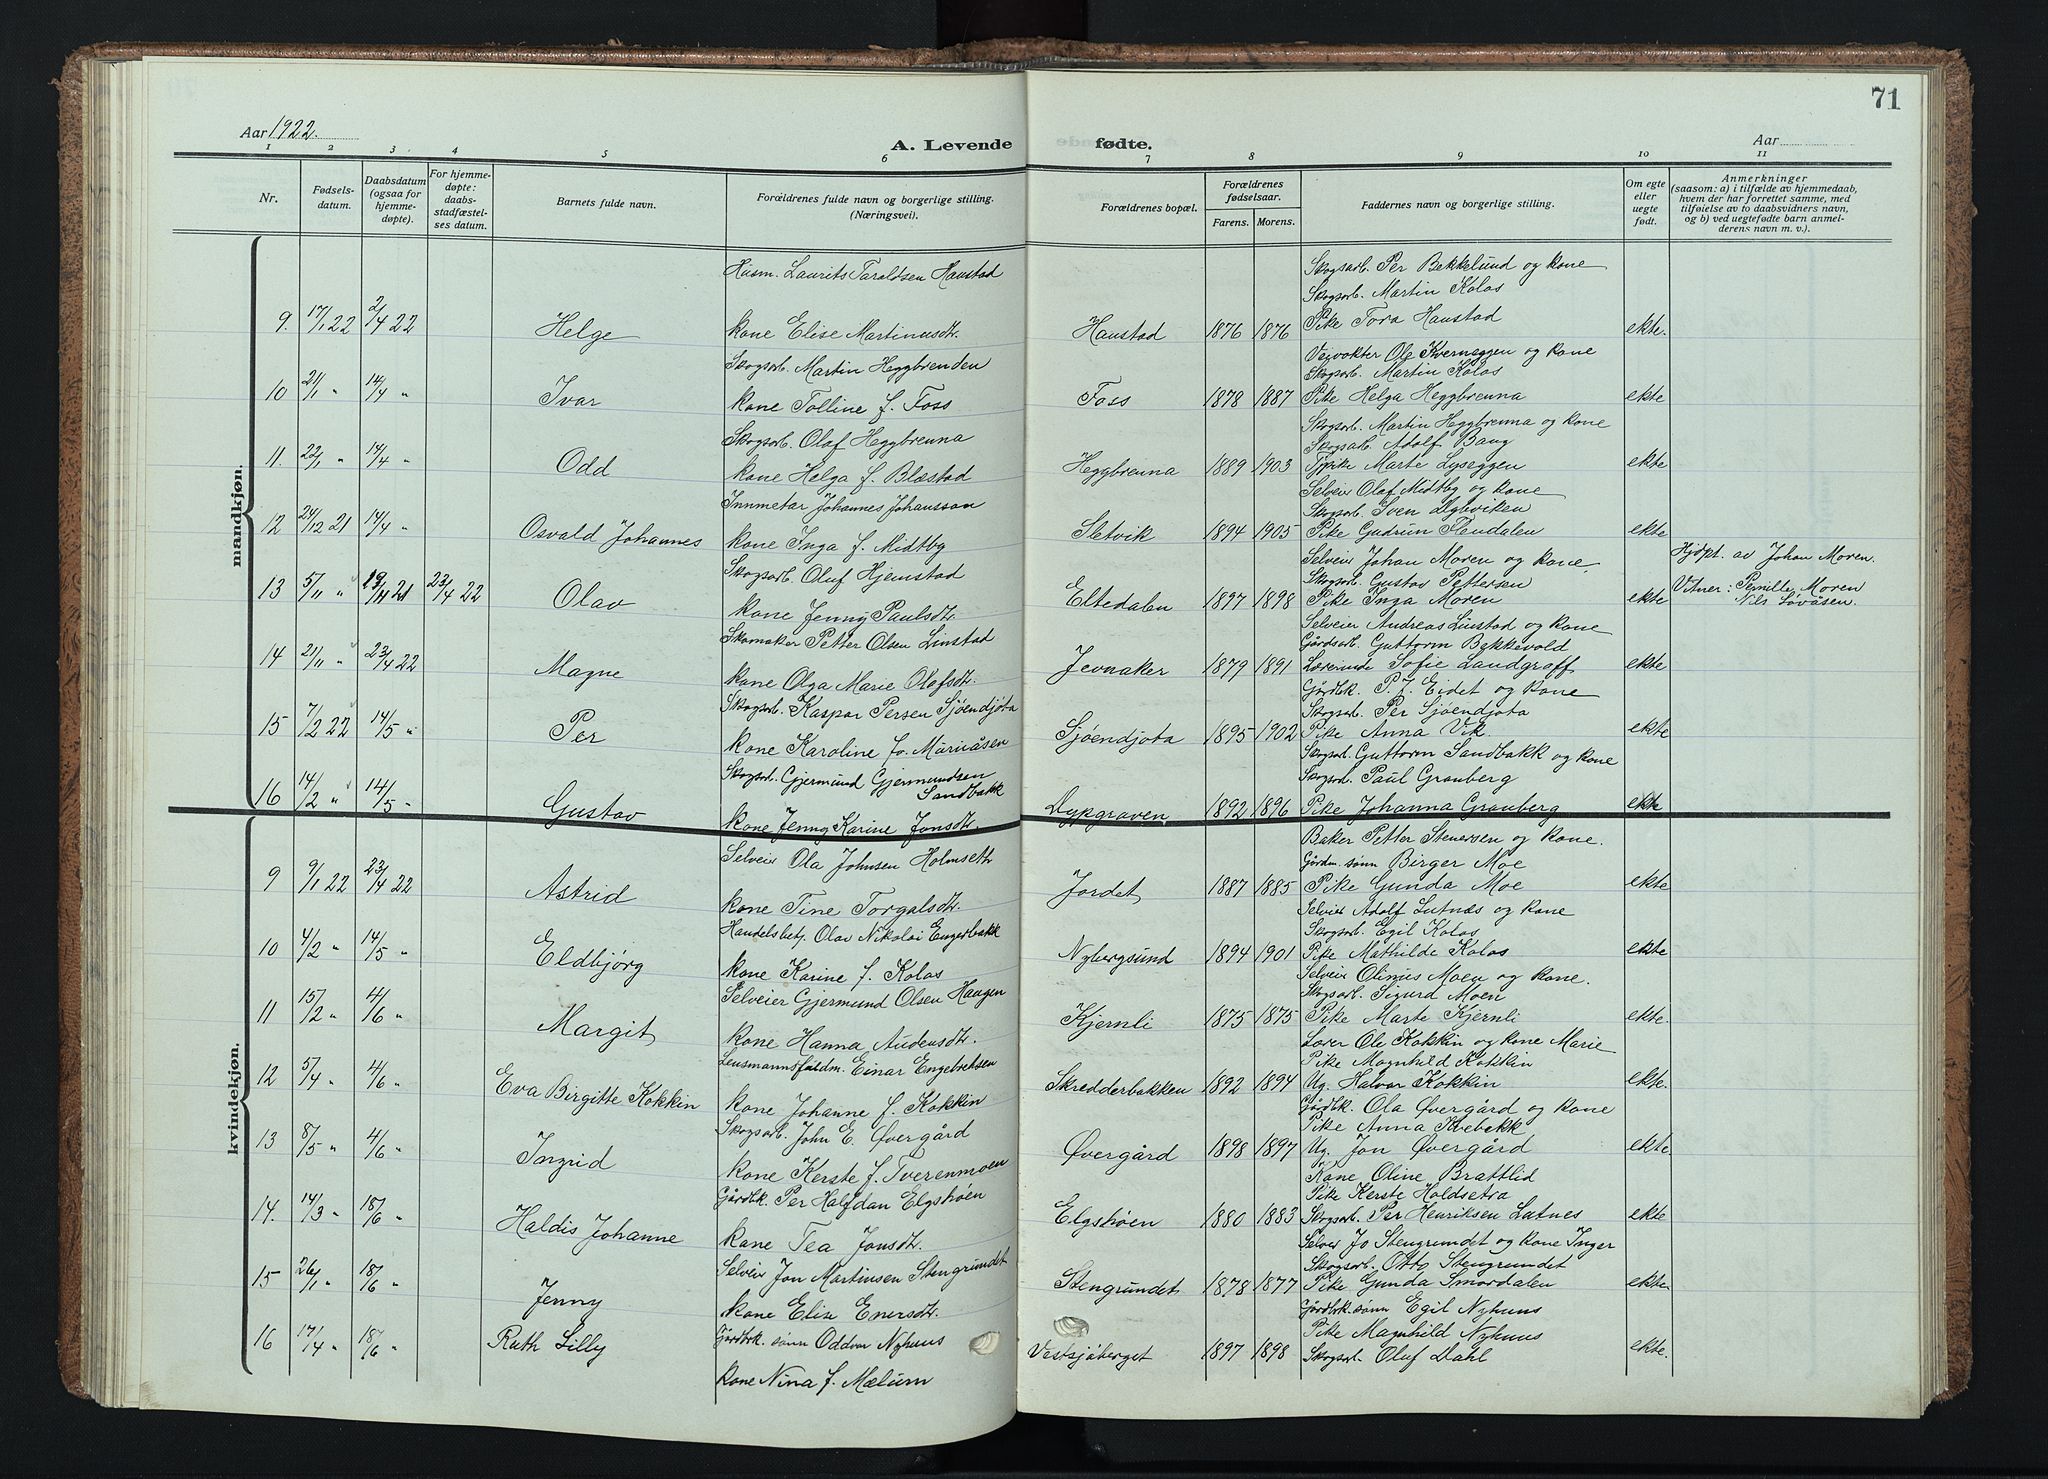 71
Aar 1922.
A. Levende
fødte.
Aar
1 2 3 4 5 6 7 8 9 10 11
Nr.
Fødsels-
datum.
Daabsdatum
(ogsaa for
hjemme-
døpte).
For hjemme-
døpte:
daabs-
stadfæstel-
ses datum.
Barnets fulde navn.
Forældrenes fulde navn og borgerlige stilling.
(Næringsvei).
Forældrenes bopæl.
Forældrenes
fødselsaar.
Farens. Morens.
Faddernes navn og borgerlige stilling.
Om egte
eller
uegte
født.
Anmerkninger
(saasom: a) i tilfælde av hjemmedaab,
hvem der har forrettet samme, med
tilføielse av to daabsvidners navn,
og b) ved uegtefødte barn anmel-
derens navn m. v.).
mandkjøn.
Husm. Laurits Taraldsen Haustad
Skogsarb. Per Bekkelund og kone
Skogsarb. Martin Kolos
9. 17/1 22 2/4 22 Helge kone Elise Martinusdtr. Haustad 1876 1876 Pike Tora Haustad ekte.
Skogsarb. Martin Heggbrenden
Veivokter Ole Kverneggen og kone
Skogsarb. Martin Kolos
10 21/1 " 14/4 " Ivar kone Tolline f. Foss Foss 1878 1887 Pike Helga Heggbrenna ekte
Skogsarb. Olaf Heggbrenna
Skogsarb. Martin Heggbrenna og kone
Skogsarb. Adolf Bang
11. 22/1 " 14/4 " Odd kone Helga f. Blæstad Heggbrenna 1889 1903 Tjpike Marte Lyseggen ekte
Innmetar Johannes Johansson
Selveier Olaf Midtby og kone
Skogsarb. Sven Dybviken
12 24/12 21 14/4 " Osvald Johannes kone Inga f. Midtby Sletvik 1894 1905 Pike Gudrun Flendalen ekte
Skogsarb. Oluf Hjemstad
Selveier Johan Moren og kone.
Hjdpt. av Johan Moren.
Skogsarb. Gustav Pettersen
13 5/11 " 19/11 21 23/4 22 Olav kone Jenny Paulsdtr. Eltedalen 1897 1898 Pike Inga Moren ekte Vitner: Pernille Moren
Nils Løvåsen.
Skomaker Petter Olsen Linstad
Selveier Andreas Linstad og kone
Gårdsarb. Guttorm Bekkevold
14 21/11 " 23/4 22 Magne kone Olga Marie Olafsdtr. Jevnaker 1879 1891 Lærerinde Sofie Landgraff ekte
Skogsarb. Kaspar Persen Sjøendjøta
Gårdbk. P. J. Eidet og kone
Skogsarb. Per Sjøendjøta
15 7/2 22 14/5 " Per kone Karoline f. Moriåsen Sjøendjøta 1895 1902 Pike Anna Vik. ekte
Skogsarb. Gjermund Gjermundsen
Sandbakk
Skogsarb. Guttorm Sandbakk og kone
Skogsarb. Paul Granberg
16 14/2 " 14/5 " Gustav kone Jenny Karine Jonsdtr. Dypgraven 1892 1896 Pike Johanna Granberg ekte
kvindekjøn.
Selveier Ola Johnsen Holmseth
Baker Petter Stenersen og kone.
Gårdm. sønn Birger Moe
9 9/1 22 23/4 22 Astrid kone Tine Torgalsdtr. Jordet 1887 1885 Pike Gunda Moe ekte
Handelsbetj. Olav Nikolai Engerbakk
Selveier Adolf Lutnæs og kone
Skogsarb. Egil Kolos
10 4/2 " 14/5 " Eldbjörg kone Karine f. Kolos Nybergsund 1894 1901 Pike Mathilde Kolos ekte
Selveier Gjermund Olsen Haugen
Selveier Olinus Moen og kone.
Skogsarb. Sigurd Moen
11 15/2 " 4/6 " Margit kone Hanna Audensdtr. Kjernli 1875 1875 Pike Marte Kjernli ekte.
Lensmannsfuldm. Einar Engebretsen
Lærer Ole Kokkin og kone Marie
Pike Magnhild Kokkin
12 5/4 " 4/6 " Eva Birgitte Kokkin kone Johanne f. Kokkin Skredderbakken 1892 1894 Ug. Halvor Kokkin ekte.
Skogsarb. John E. Øvergård
Gårdbk. Ola Øvergård og kone
Pike Anna Kvebakk
13 8/5 " 4/6 " Ingrid kone Kerste f. Tverenmoen Øvergård 1898 1897 Ug. Jon Øvergård ekte.
Gårdbk. Per Halfdan Elgshøen
Kone Oline Brattlid
Pike Kerste Holdsetra
14. 14/3 " 18/6 " Haldis Johanne kone Tea Jonsdtr. Elgshøen 1880 1883 Skogsarb. Per Henriksen Lutnes ekte
Selveier Jon Martinsen Stengrundet
Selveier Jo Stengrundet og kone Inger
Skogsarb. Otto Stengrundet
15 26/1 " 18/6 " Jenny kone Elise Enersdtr. Stengrundet 1878 1877 Pike Gunda Smordalen ekte
Gårdbrk. sønn Egil Nyhuus
Gårdbrk. sønn Oddvar Nyhuus
Pike Magnhild Nyhuus
16 17/4 " 18/6 " Ruth Lilly kone Nina f. Mælum Vestsjøberget 1897 1898 Skogsarb. Oluf Dahl ekte.